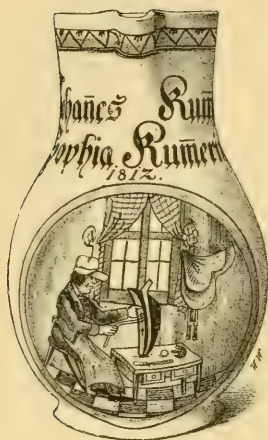 han̄es Kum̄
ophia Kum̄er
1812.